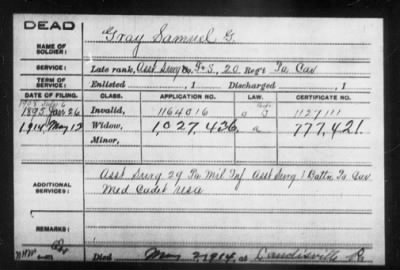 DEAD
NAME OF SOLDIER: Gray Samuel G.
SERVICE: Late rank, Asst Surg Co. F+S, 20 Reg't Pa Cav
TERM OF SERVICE: Enlisted , 1 Discharged , 1
DATE OF FILING. CLASS. APPLICATION NO. CERTIFICATE NO.
1908 July 6
1895 Jan 26 Invalid, 1164016 1127111
1914, May 12 Widow, 1,027,436, a 777,421.
Minor,
ADDITIONAL SERVICES: Asst Surg 29 Pa Mil Inf Asst Surg 1 Battn Pa Cav
Med Cadet USA
REMARKS:
Died May 2, 1914, at Landisville Pa